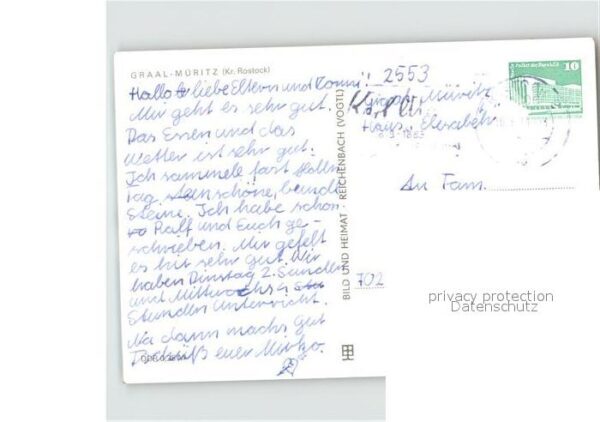 GRAAL-MÜRITZ (Kr. Rostock)
Hallo liebe Eltern und Conni!
Mir geht es sehr gut.
Das Essen und das
Wetter ist sehr gut.
Ich sammele fast
Tag schöne, bunde
Steine. Ich habe schon
Ralf und Euch ge-
schrieben. Mir gefelt
es hir sehr gut. Wir
haben Dinstag 2. Sunden
und Mittwochs 4
Stunden Unterricht.
Na dann machs gut
Tschüß euer Mirko.
BILD UND HEIMAT · REICHENBACH (VOGTL)
2553
Graal-Müritz
Haus Elisabeth
10
An Fam.
702
privacy protection
Datenschutz